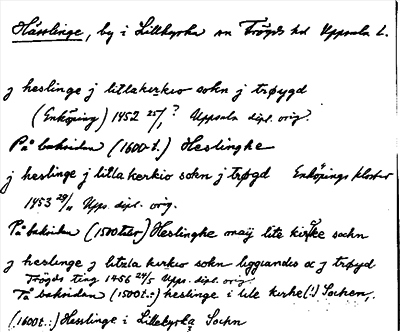 Hässlinge, by i Lillkyrka sn Trögds hd Uppsala l.
j heslinge j litlakirkio sokn j trøygd
(Enköping) 1452 25/1 ? Uppsala dipl. orig.
På baksidan (1600-t.) Heslingke
j heslinge j litlakirkio sokn j trøgd Enköpings kloster
1453 29/11 Upps. dipl. orig.
På baksidan (1500 talr) Heslingke lite kirke sochn
j heslinge j litula kirkio sokn liggiandis j trøyd
Trögds ting 1456 24/5 Upps. dipl. orig.
På baksidan (1500 t.:) heslinge i lile kirke (!) Sochen,
(1600 t.:) Hesslinge i Lillekyrka Sochn